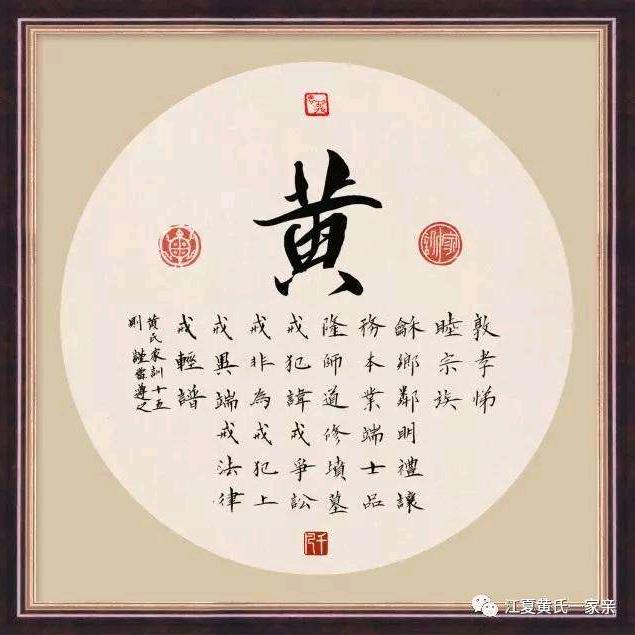 黄
家訓
敦孝悌
睦宗族
龢鄉鄰明禮讓
務本業端士品
隆師道修墳墓
戒犯諱戒爭訟
戒非為戒犯上
戒異端戒法律
戒輕譜
黄氏家訓十五
則 謹當遵之
江夏黄氏一家亲